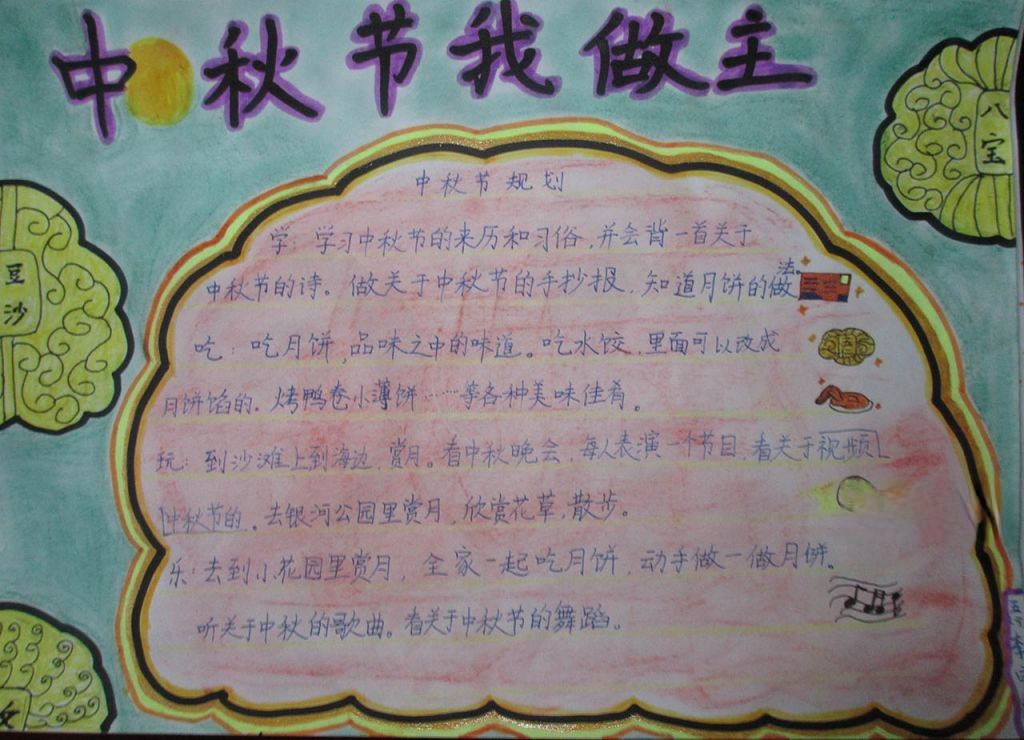 中秋节我做主
八宝
豆沙
中秋节规划
学：学习中秋节的来历和习俗，并会背一首关于
中秋节的诗。做关于中秋节的手抄报，知道月饼的做法。
吃：吃月饼，品味之中的味道。吃水饺，里面可以改成
月饼馅的．烤鸭卷小薄饼……等各种美味佳肴。
玩：到沙滩上到海边，赏月。看中秋晚会，每人表演一个节目，看关于视频
中秋节的。去银河公园里赏月，欣赏花草，散步。
乐：去到小花园里赏月，全家一起吃月饼，动手做一做月饼。
听关于中秋的歌曲。看关于中秋节的舞蹈。